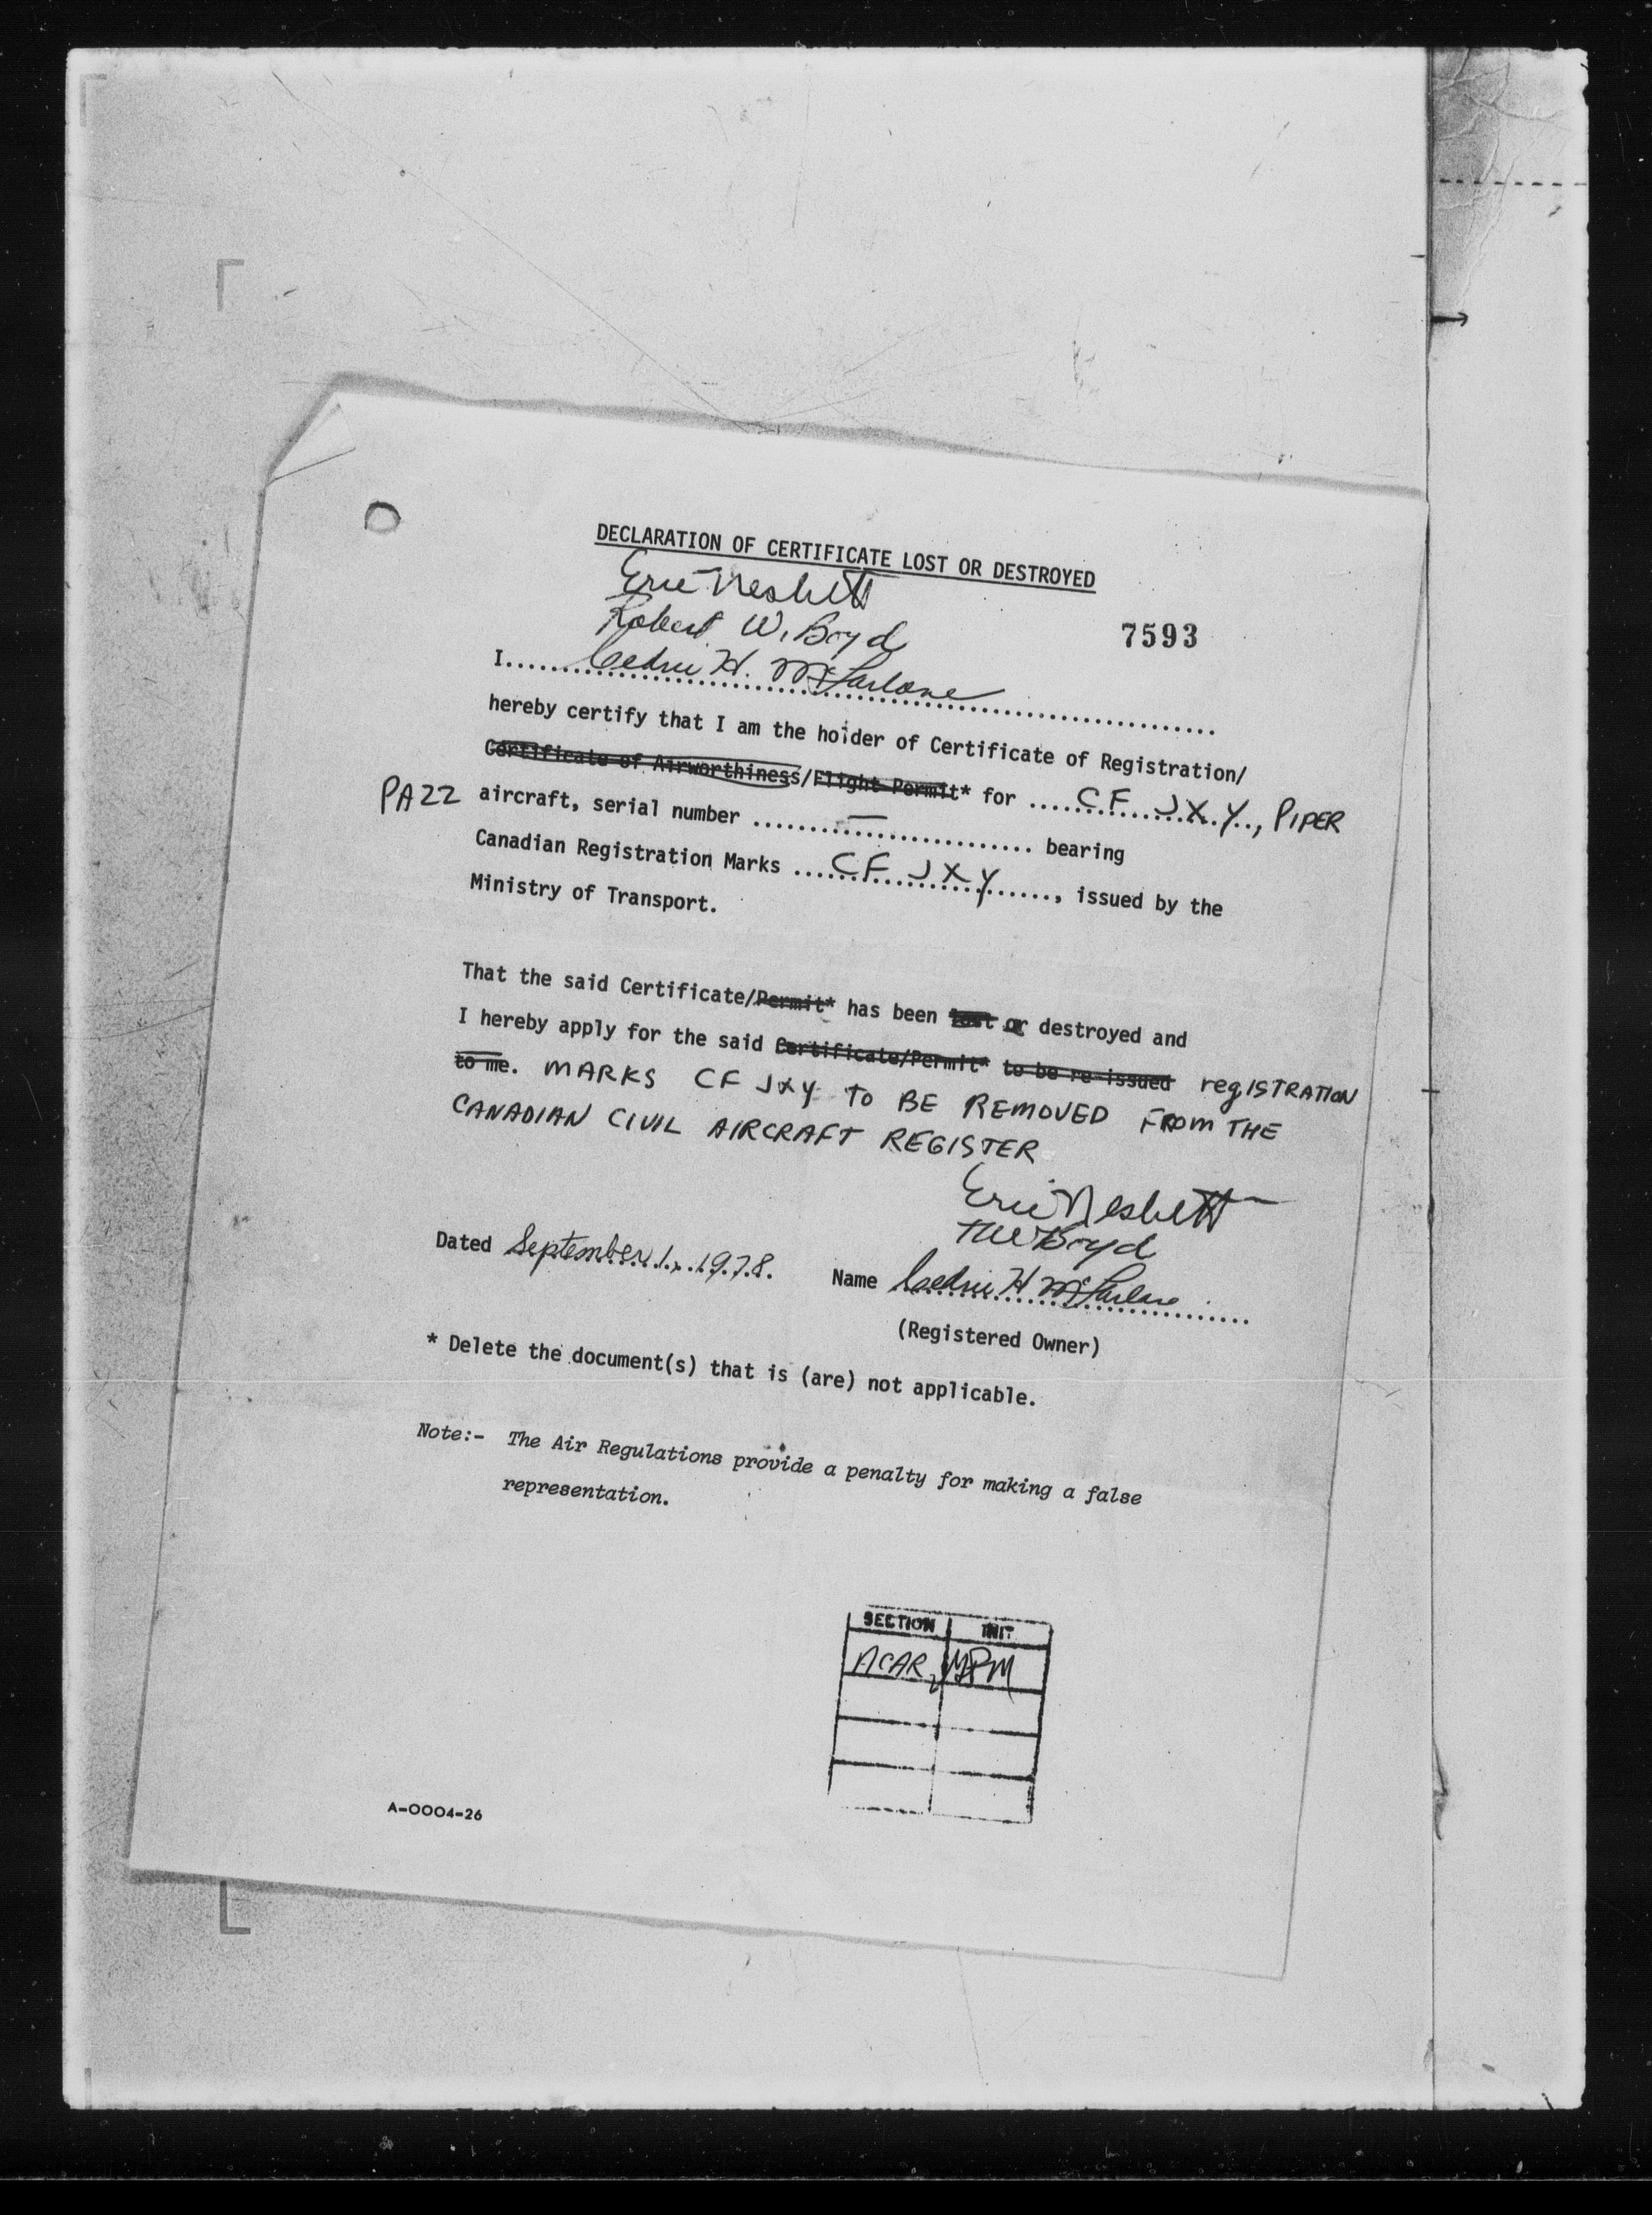 DECLARATION OF CERTIFICATE LOST OR DESTROYED
Eric Nesbitt
Robert W. Boyd
7593
I.....Cedric H. McFarlane.....
hereby certify that I am the holder of Certificate of Registration/
Certificate of Airworthiness/Flight Permit* for ..... CF JXY..., PIPER
PA22 aircraft, serial number ..... — ..... bearing
Canadian Registration Marks ..... CF JXY ....., issued by the
Ministry of Transport.
That the said Certificate/Permit* has been lost or destroyed and
I hereby apply for the said Certificate/Permit* to be re-issued regISTRATION
to me. MARKS CF JXY TO BE REMOVED FROM THE
CANADIAN CIVIL AIRCRAFT REGISTER
Eric Nesbitt
RW Boyd
Dated September 1, 1978.
Name Cedric H McFarlane
(Registered Owner)
* Delete the document(s) that is (are) not applicable.
Note:- The Air Regulations provide a penalty for making a false
representation.
SECTION INIT
ACAR MPM
A-0004-26